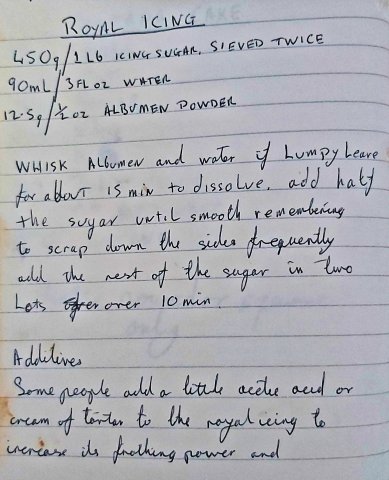 ROYAL ICING
450g/1 LB ICING SUGAR, SIEVED TWICE
90mL/3 FL OZ WATER
12.5g/½ OZ ALBUMEN POWDER
WHISK ALBUMEN and water if Lumpy Leave
for about 15 min to dissolve. add half
the sugar until smooth remembering
to scrap down the sides frequently
add the rest of the sugar in two
Lots over 10 min.
Additives
Some people add a little acetic acid or
cream of tartar to the royal icing to
increase its frothing power and